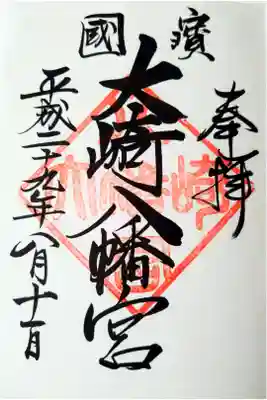 國寳
奉拝
大崎八幡宮
平成二十九年八月十一日